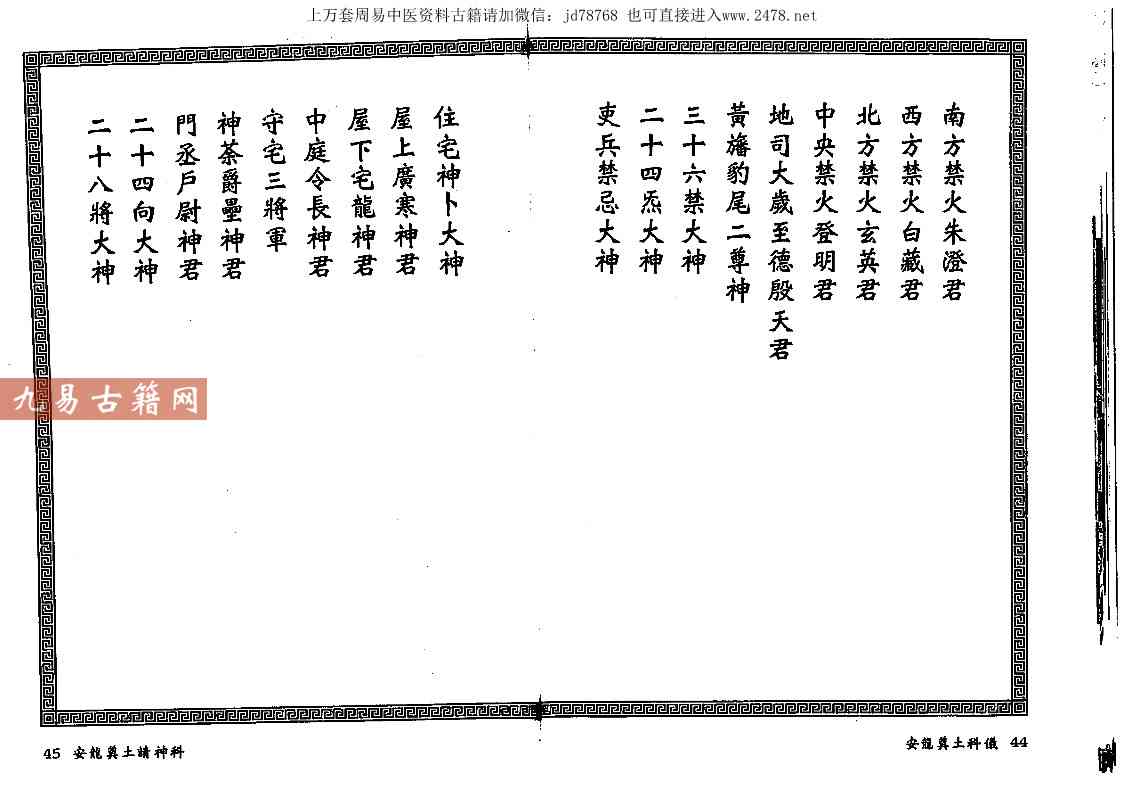 上万套周易中医资料古籍请加微信：jd78768 也可直接进入www.2478.net
南方禁火朱澄君
西方禁火白藏君
北方禁火玄英君
中央禁火登明君
地司大歲至德殷天君
黃旛豹尾二尊神
三十六禁大神
二十四炁大神
吏兵禁忌大神
住宅神卜大神
屋上廣寒神君
屋下宅龍神君
中庭令長神君
守宅三將軍
神荼爵壘神君
門丞戶尉神君
二十四向大神
二十八將大神
九易古籍网
安龍奠土科儀 44
45 安龍奠土請神科